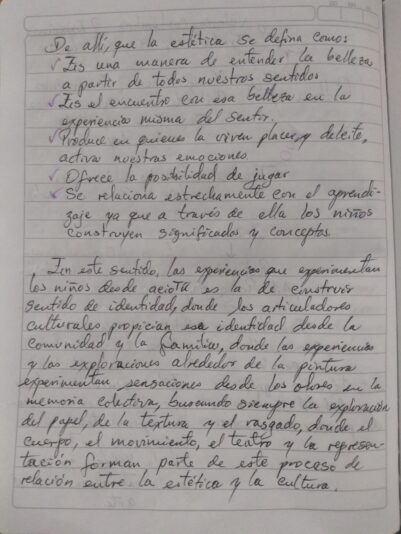 De allí, que la estética se defina como:
✓ Es una manera de entender la belleza
a partir de todos nuestros sentidos
✓ Es el encuentro con esa belleza en la
experiencia misma del sentir.
✓ Produce en quienes la viven placer, y deleite,
activa nuestras emociones
✓ Ofrece la posibilidad de jugar
✓ Se relaciona estrechamente con el aprendi-
zaje ya que a través de ella los niños
construyen significados y conceptos.
En este sentido, las experiencias que experimentan
los niños desde es la de construir
sentido de identidad, donde los articuladores
culturales propician esa identidad desde la
comunidad y la familia, donde las experiencias
y las exploraciones alrededor de la pintura
experimentan sensaciones desde los olores en la
memoria colectiva, buscando siempre la exploración
del papel, de la textura y el rasgado, donde el
cuerpo, el movimiento, el teatro y la represen-
tación forman parte de este proceso de
relación entre la estética y la cultura.